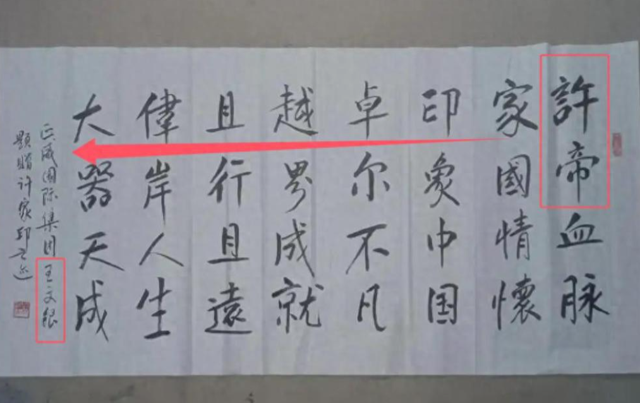 許帝血脉
家國情懷
印象中国
卓尔不凡
越界成就
且行且遠
偉岸人生
大器天成
正威国际集团王文银
題赠许家印